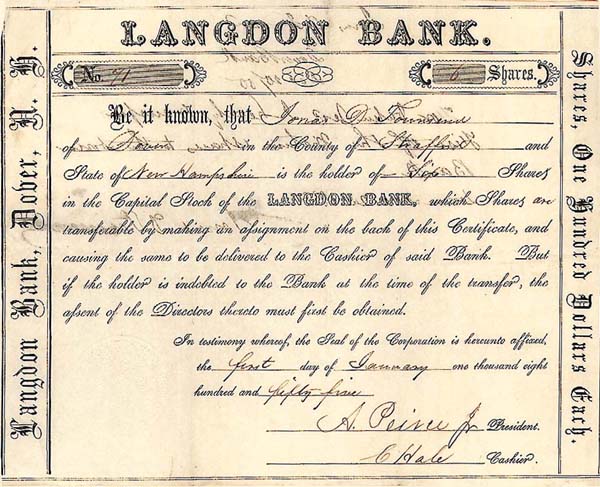 LANGDON BANK.
No. 91
6 Shares.
Be it known, that Jonas D. Townsend
of Dover in the County of Strafford and
State of New Hampshire is the holder of Six Shares
in the Capital Stock of the LANGDON BANK, which Shares are
transferable by making an assignment on the back of this Certificate, and
causing the same to be delivered to the Cashier of said Bank. But
if the holder is indebted to the Bank at the time of the transfer, the
assent of the Directors thereto must first be obtained.
In testimony whereof, the Seal of the Corporation is hereunto affixed,
the first day of January one thousand eight
hundred and fifty five
A. Peirce Jr President.
C Hale Cashier.
Langdon Bank, Dover, N. H.
Shares, One Hundred Dollars Each.